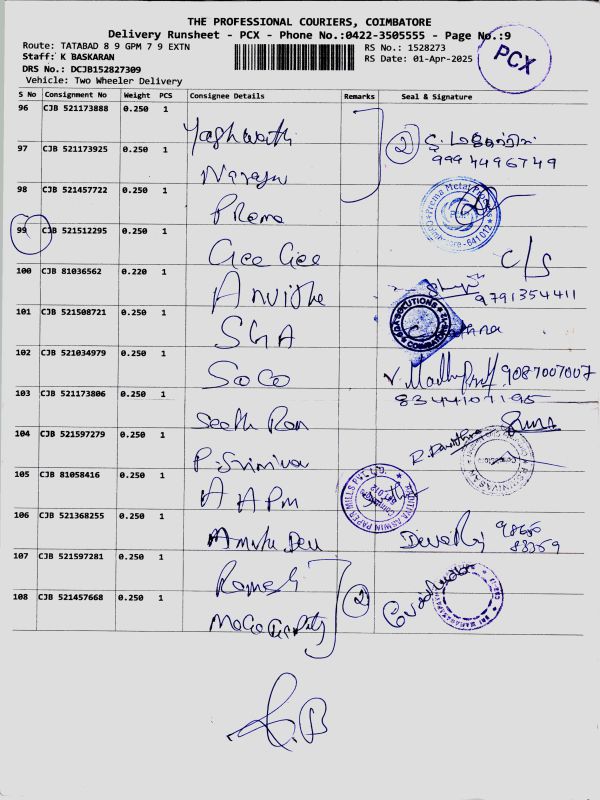 THE PROFESSIONAL COURIERS, COIMBATORE
Delivery Runsheet - PCX - Phone No.:0422-3505555 - Page No.:9
Route: TATABAD 8 9 GPM 7 9 EXTN
RS No.: 1528273
Staff: K BASKARAN
RS Date: 01-Apr-2025
DRS No.: DCJB152827309
Vehicle: Two Wheeler Delivery
PCX
S No Consignment No Weight PCS Consignee Details Remarks Seal & Signature
96 CJB 521173888 0.250 1 Yashwanth 2
9994496749
97 CJB 521173925 0.250 1
98 CJB 521457722 0.250 1 Prema
Prema Metal
641012
99 CJB 521512295 0.250 1 Gee Gee C/S
100 CJB 81036562 0.220 1 Anvitha 9791354411
101 CJB 521508721 0.250 1 SGA
SOLUTIONS
COIMBATORE
102 CJB 521034979 0.250 1 SoCo 9087007007
8344107195
103 CJB 521173806 0.250 1 Seeth Ram
104 CJB 521597279 0.250 1 P. Srinivas
105 CJB 81058416 0.250 1 A A Pm
ADITYA ASWIN PAPER MILLS PVT. LTD.
106 CJB 521368255 0.250 1
107 CJB 521597281 0.250 1 Ramesh 2
108 CJB 521457668 0.250 1